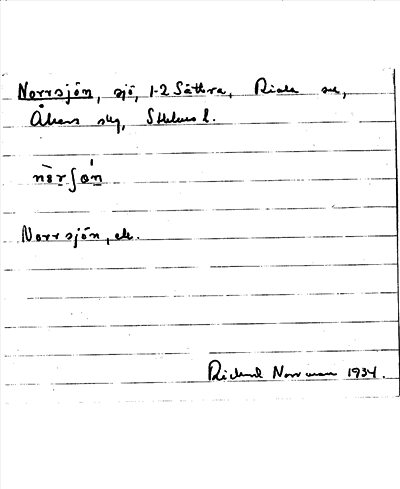 Norrsjön, sjö, 1-2 Sättra, Riala sn,
Åkers skg, Sthlms l.
nòrʃǿn
Norrsjön, ek.
Rickard Norrman 1934.